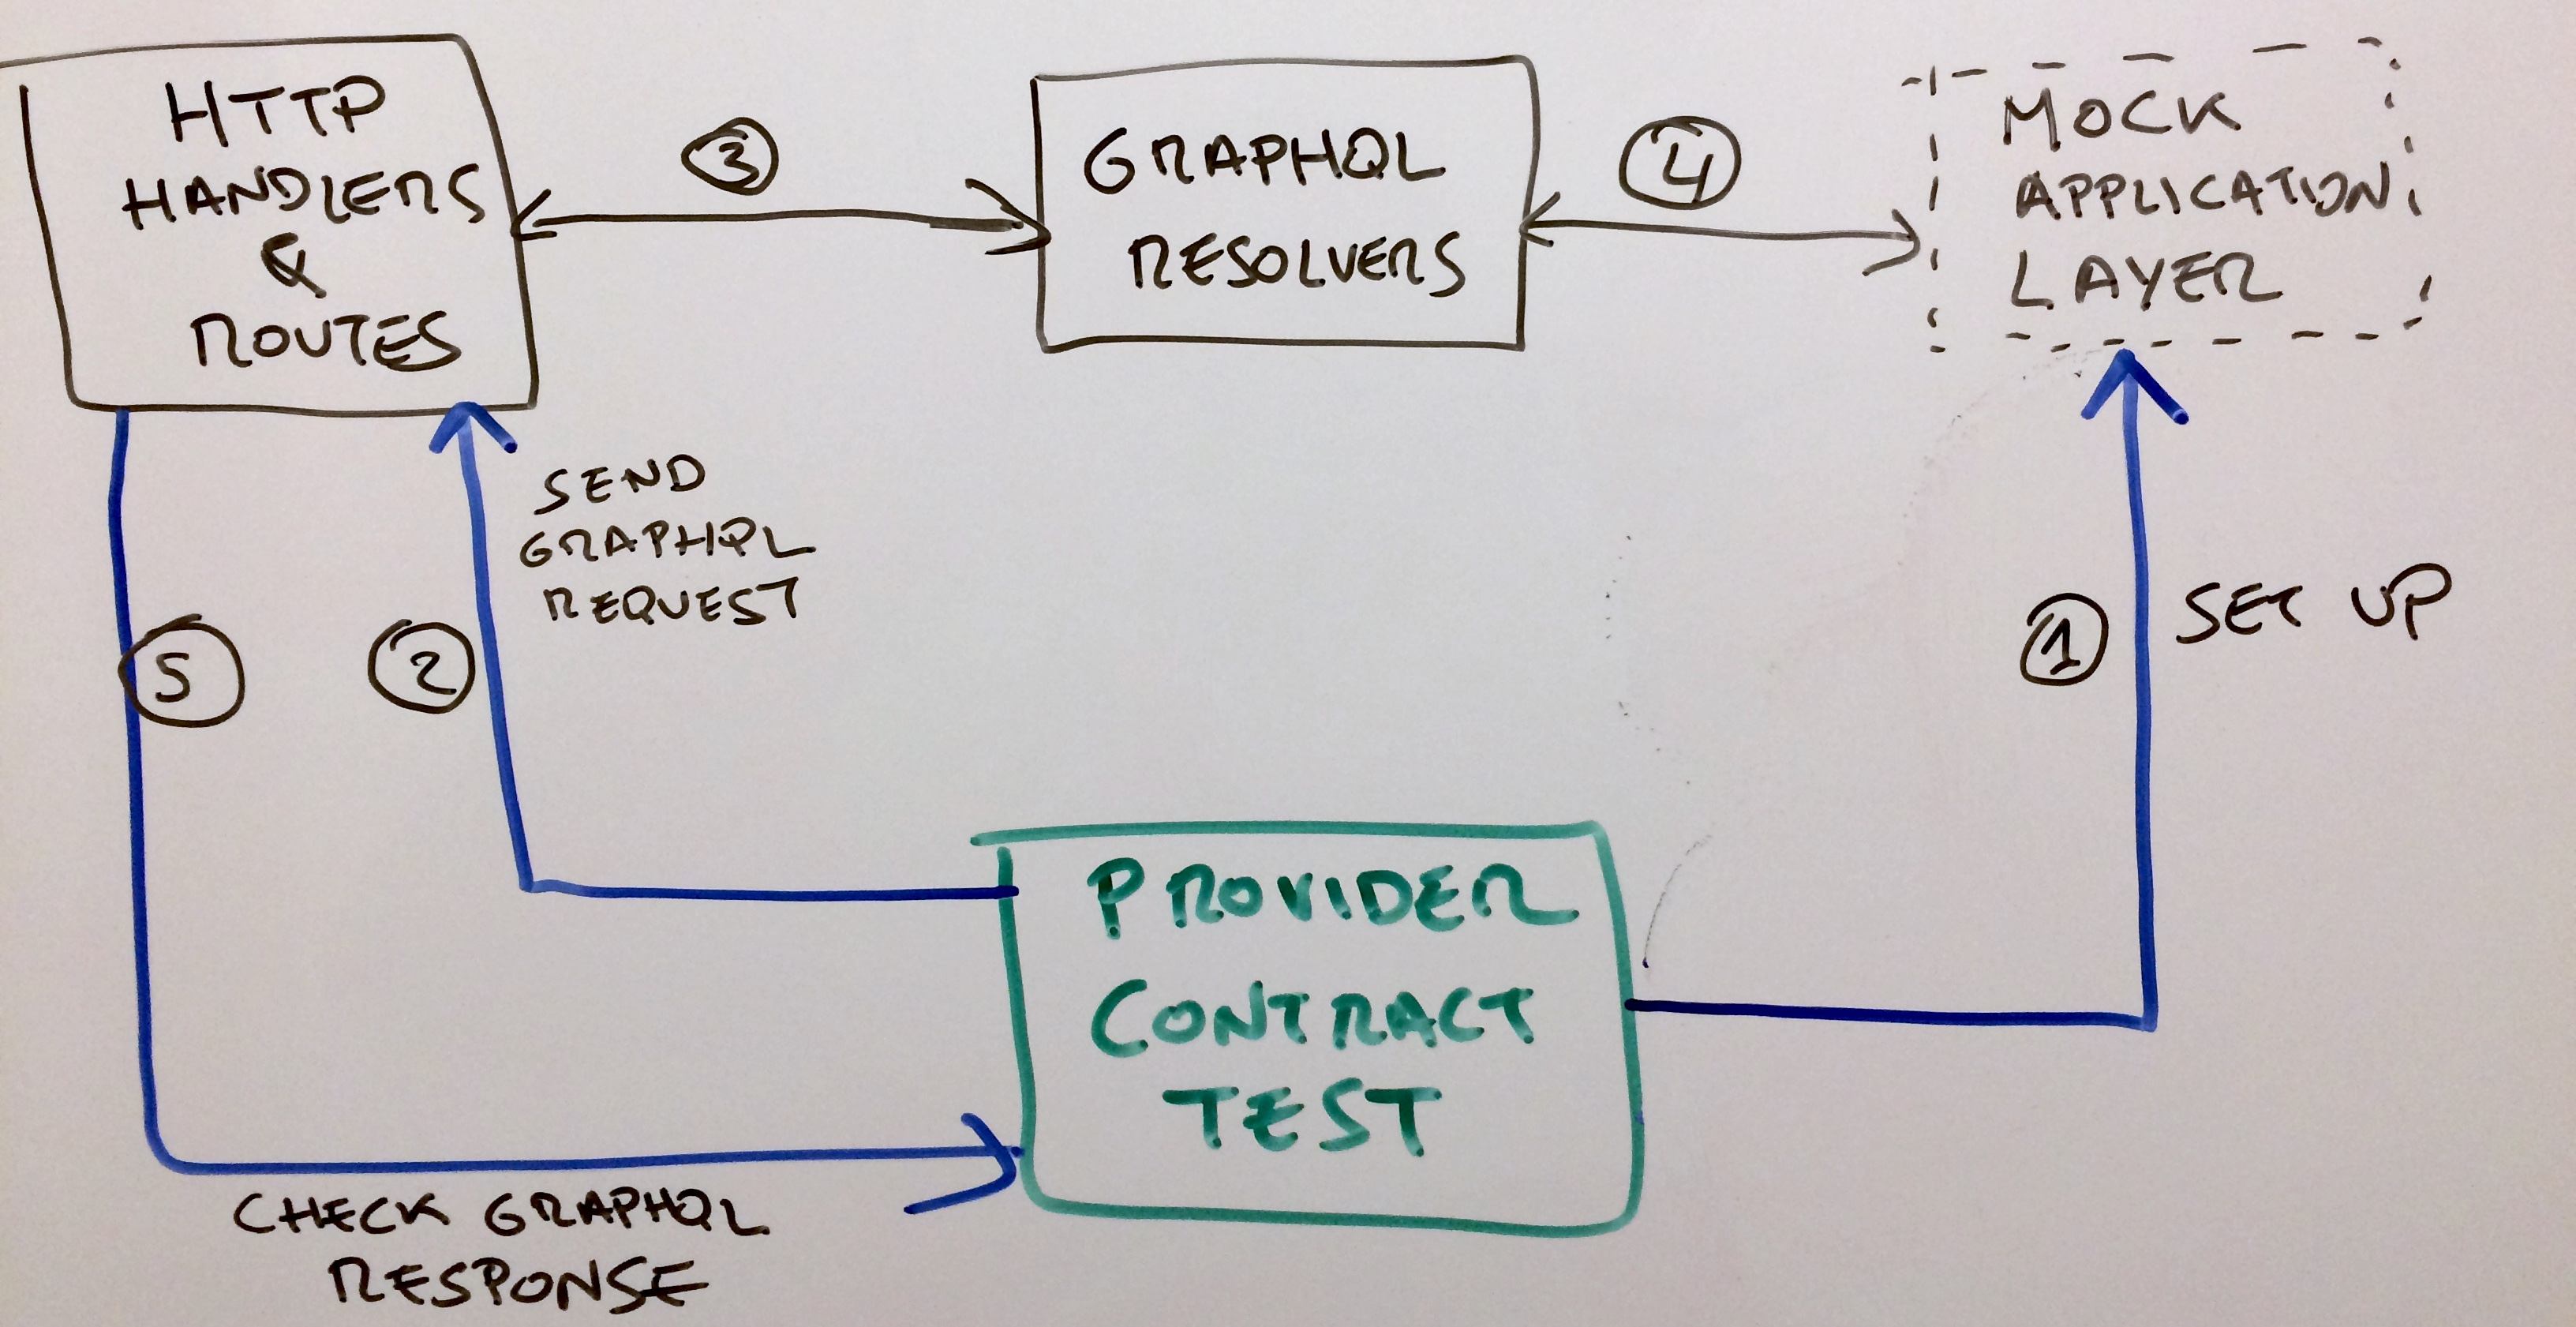 HTTP
HANDLERS
&
ROUTES
3
GRAPHQL
RESOLVERS
4
MOCK
APPLICATION
LAYER
SEND
GRAPHQL
REQUEST
5
2
1
SET UP
PROVIDER
CONTRACT
TEST
CHECK GRAPHQL
RESPONSE